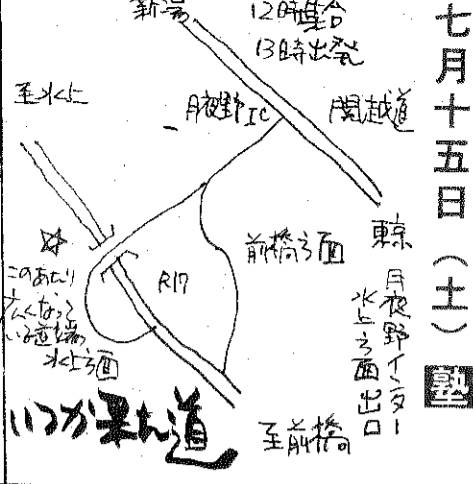 七月十五日（土）
塾
新潟
12時集合
13時出発
至水上
月夜野IC
関越道
東京
前橋方面
R17
月夜野インター
水上方面出口
☆
このあたり
広くなって
いる道端
水上方面
至前橋
いつか来た道